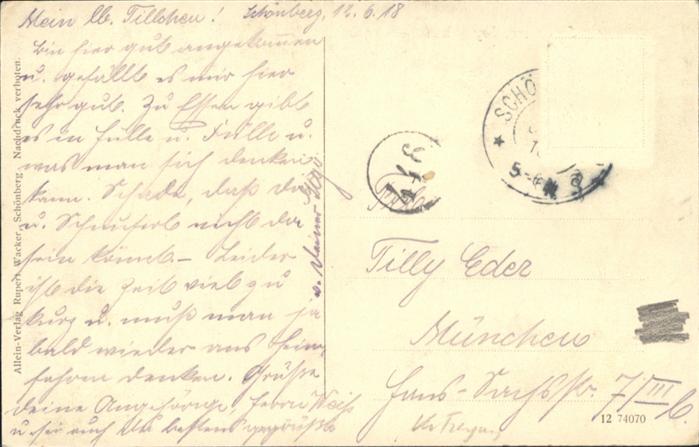 Mein lb. Tillchen! Schönberg, 12.6.18
bin hier gut angekommen
u. gefällt es mir hier
sehr gut. Zu Essen gibt
es in Hülle u. Fülle u.
was man sich denken
kann. Schade, daß du
u. nicht da
sein könnt – Leider
ist die Zeit viel zu
kurz u. muß man ja
bald wieder ans Heim
fahren denken. Grüße
deine Angehörige, Herrn Weiß
u. sei auch du bestens gegrüßt
v. deiner
Allein-Verlag Rupert Wacker, Schönberg. Nachdruck verboten.
SCHÖ
5-6 N
Tilly Eder
München
Hans-Sachsstr. 7/III
12 74070